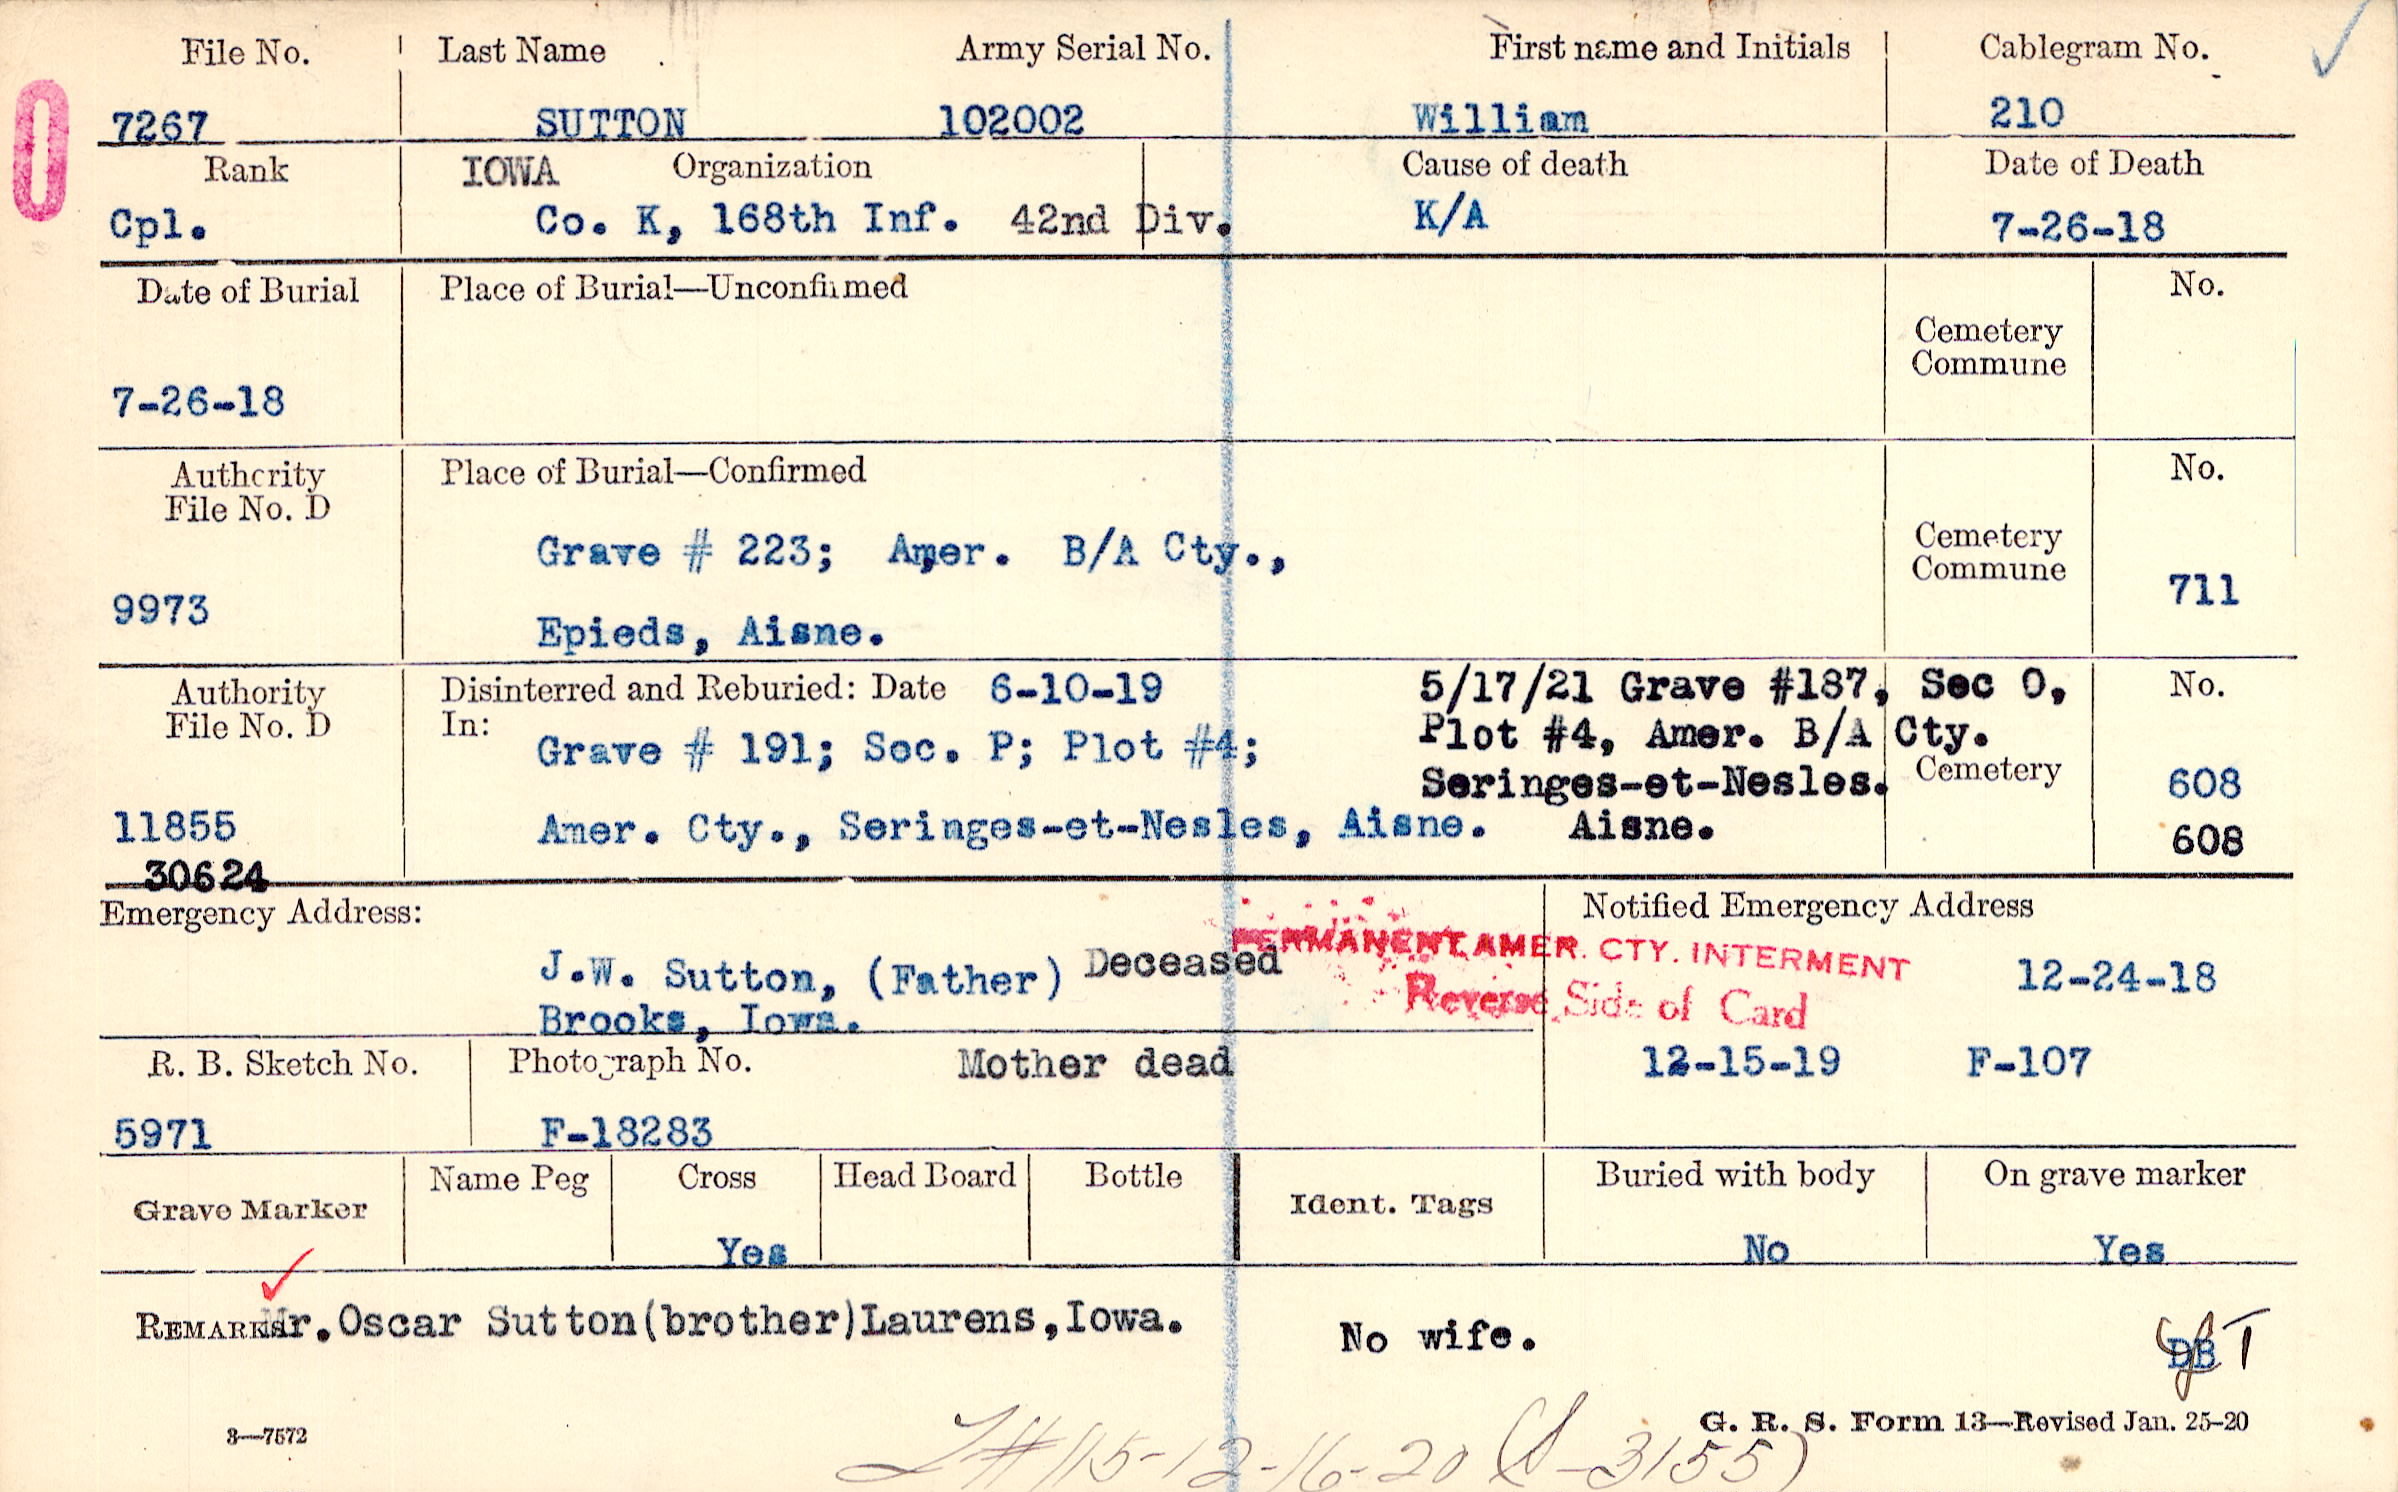 File No. Last Name Army Serial No. First name and Initials Cablegram No.
7267 SUTTON 102002 William 210
Rank IOWA Organization Cause of death Date of Death
Cpl. Co. K, 168th Inf. 42nd Div. K/A 7-26-18
Date of Burial Place of Burial—Unconfirmed No.
Cemetery
Commune
7-26-18
Authority Place of Burial—Confirmed No.
File No. D
Grave # 223; Amer. B/A Cty., Cemetery
Commune
9973 711
Epieds, Aisne.
Authority Disinterred and Reburied: Date 6-10-19 5/17/21 Grave #187, Sec O, No.
File No. D In:
Grave # 191; Sec. P; Plot #4; Plot #4, Amer. B/A Cty.
Seringes-et-Nesles. Cemetery 608
11855 Amer. Cty., Seringes-et-Nesles, Aisne. Aisne. 608
30624
Emergency Address: Notified Emergency Address
PERMANENT AMER. CTY. INTERMENT
J.W. Sutton, (Father) Deceased 12-24-18
Reverse Side of Card
Brooks, Iowa.
R. B. Sketch No. Photograph No. Mother dead 12-15-19 F-107
5971 F-18283
Grave Marker Name Peg Cross Head Board Bottle Ident. Tags Buried with body On grave marker
Yes No Yes
REMARKS Mr. Oscar Sutton(brother)Laurens,Iowa. No wife.
DB
3—7572 G. R. S. Form 13—Revised Jan. 25-20
115-12-16-20 3155)